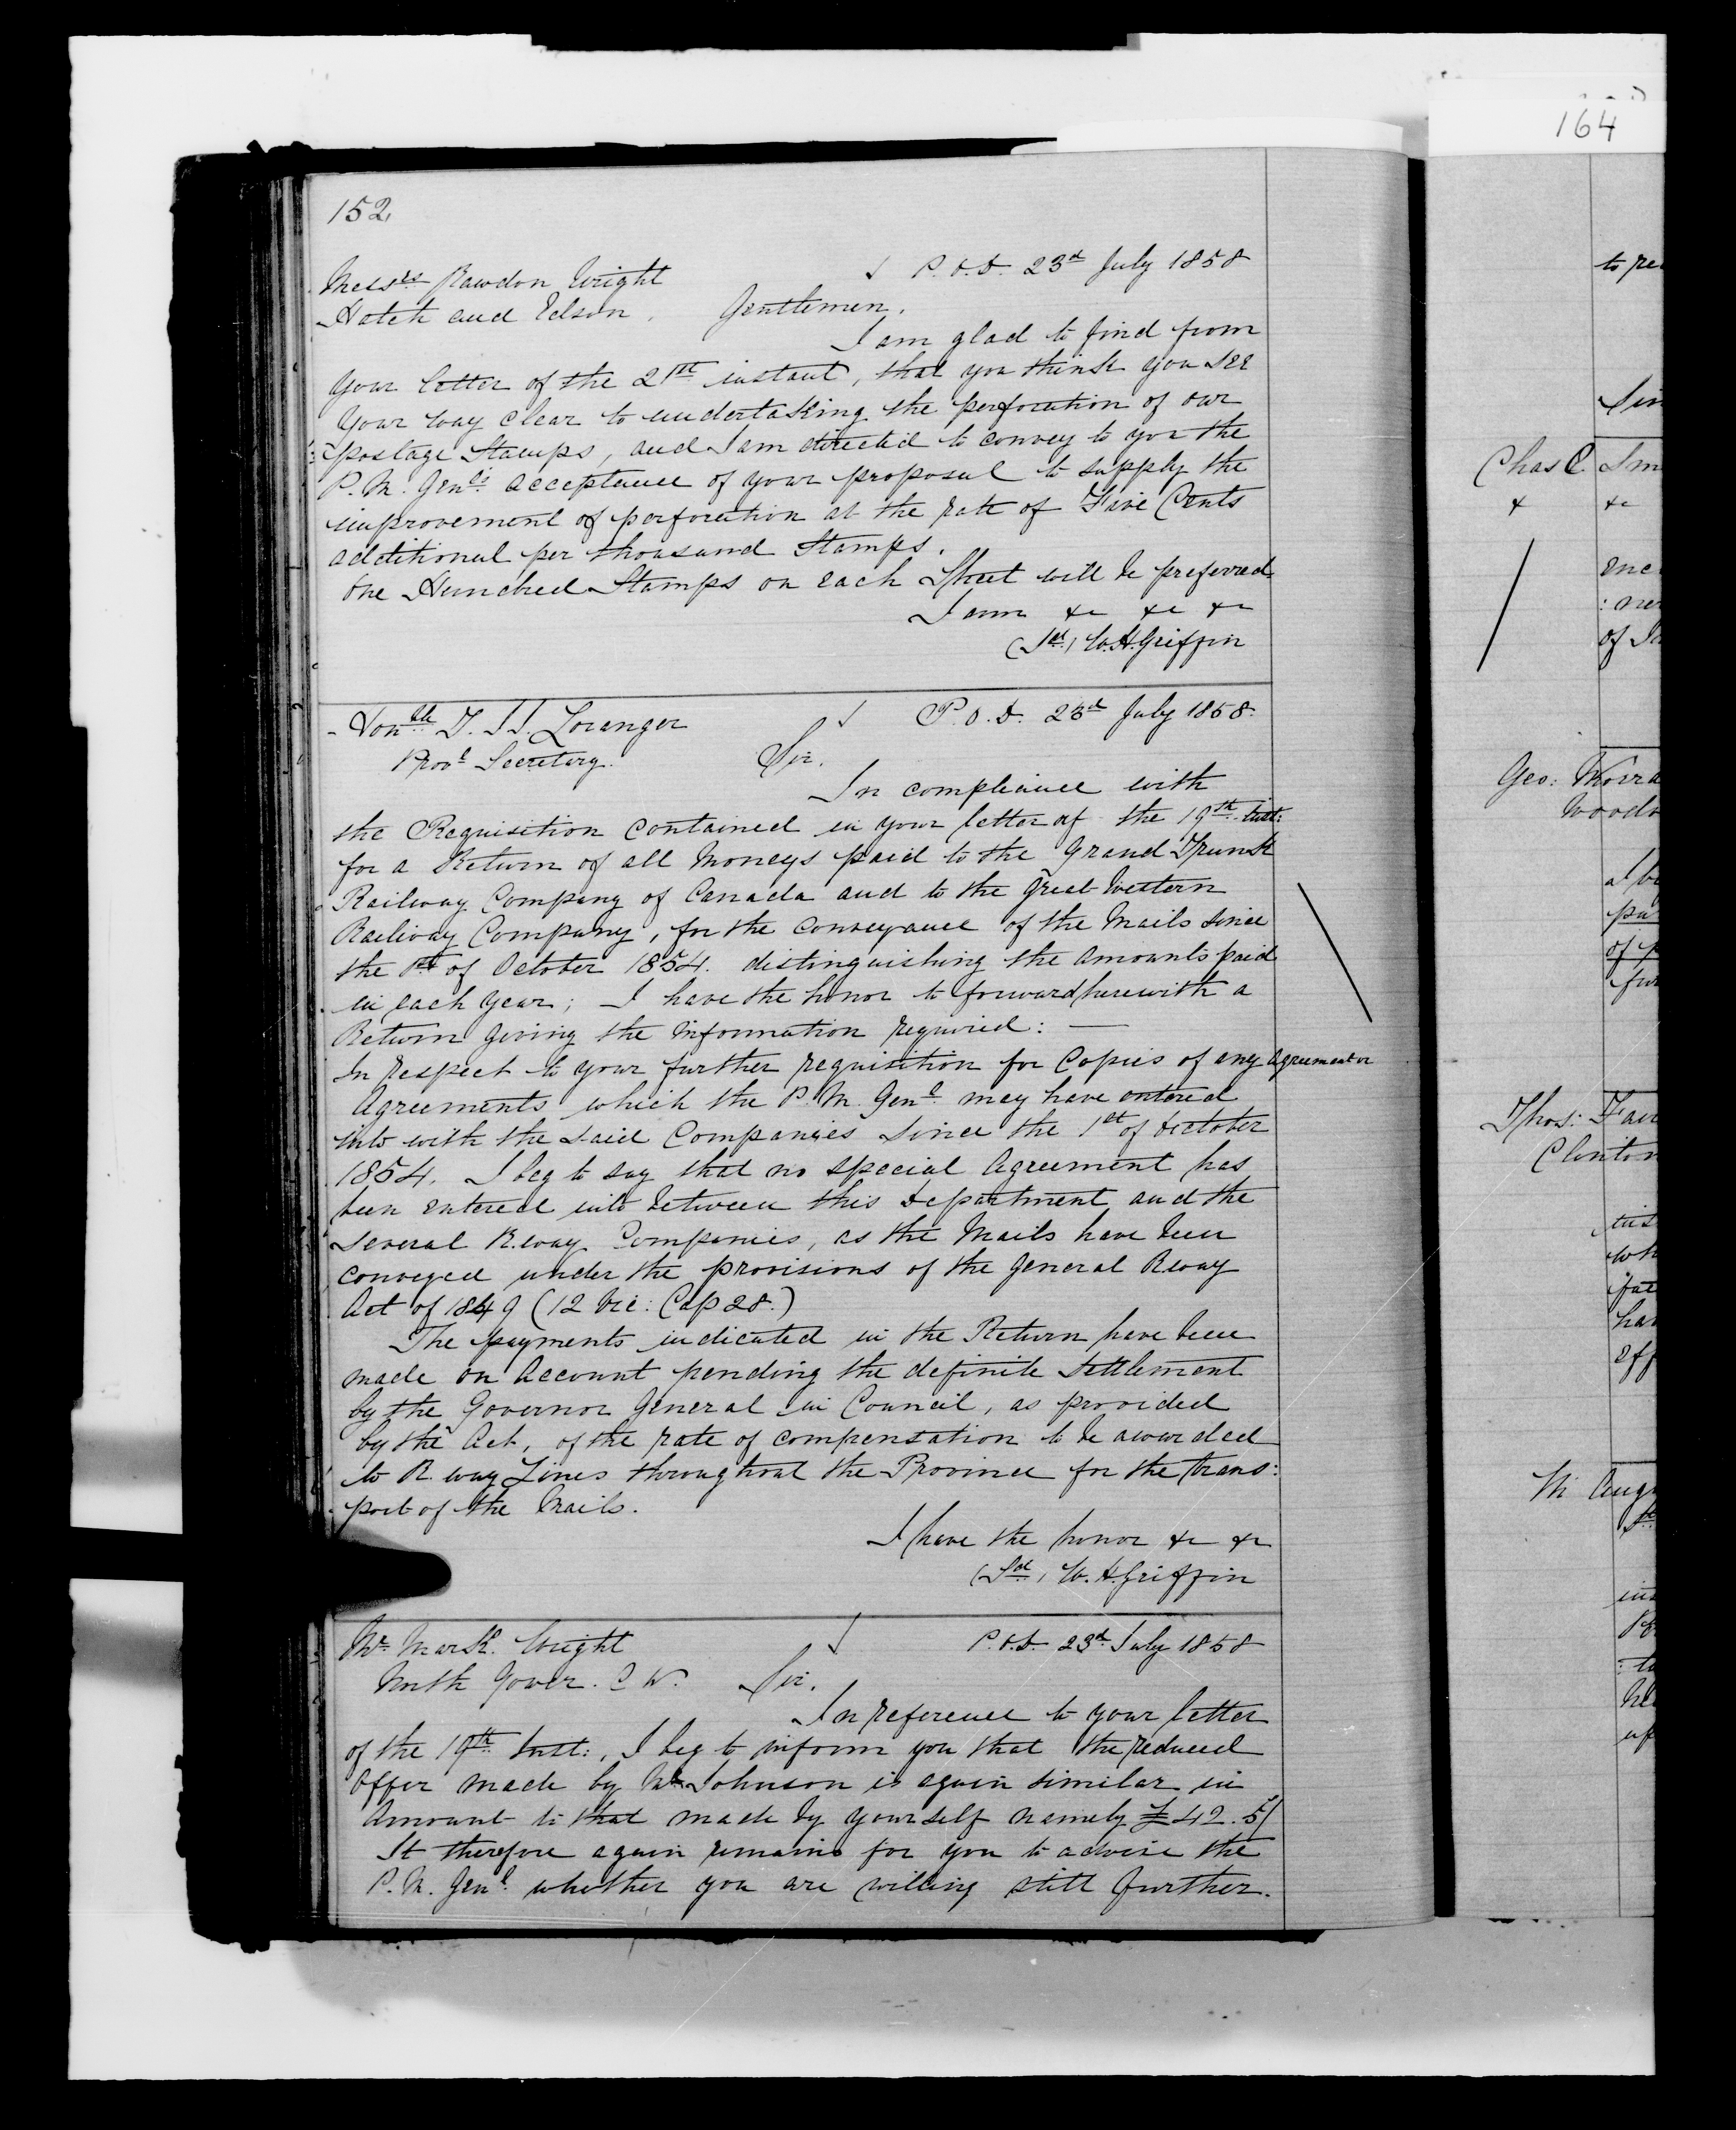 164
152
Messrs Rawdon Wright P.O.D. 23d July 1858
Hatch and Edson. Gentlemen,
I am glad to find from
your letter of the 21st instant, that you think you see
your way clear to undertaking the perforation of our
postage Stamps, and I am directed to convey to you the
P. M. Genl's acceptance of your proposal to supply the
improvement of perforation at the rate of Five Cents
additional per thousand Stamps.
One Hundred Stamps on each Sheet will be preferred
I am &c &c &c
(Sd) W. H. Griffin
Honble T. J. J. Loranger P.O.D. 23d July 1858.
Provl Secretary. Sir,
In compliance with
the Requisition contained in your letter of the 19th inst:
for a Return of all Moneys paid to the Grand Trunk
Railway Company of Canada and to the Great Western
Railway Company, for the conveyance of the Mails since
the 1st of October 1854. distinguishing the amounts paid
in each year; I have the honor to forward herewith a
Return giving the information required: —
In respect to your further requisition for Copies of any Agreement or
Agreements which the P. M. Genl may have entered
into with the said Companies since the 1st of October
1854. I beg to say that no special Agreement has
been entered into between this Department and the
several R.way Companies, as the Mails have been
conveyed under the provisions of the General Rway
Act of 1849 (12 Vic: Cap 28.)
The payments indicated in the Return have been
made on Account pending the definite settlement
by the Governor General in Council, as provided
by the Act, of the rate of compensation to be awarded
to R.way Lines throughout the Province for the trans:
port of the Mails.
I have the honor &c &c
(Sd) W. H. Griffin
Mr Mark Wright P.O.D. 23d July 1858
North Gower. C W. Sir,
In reference to your letter
of the 19th Inst:, I beg to inform you that the reduced
offer made by Mr Johnson is again similar in
amount to that made by yourself namely £42.5/
It therefore again remains for you to advise the
P. M. Genl whether you are willing still further.
to re
Sir
Chas C Sm
& &c
enc
: ne
of
Geo:
Woods
Thos: Fair
Clinton
wh
hav
eff
up